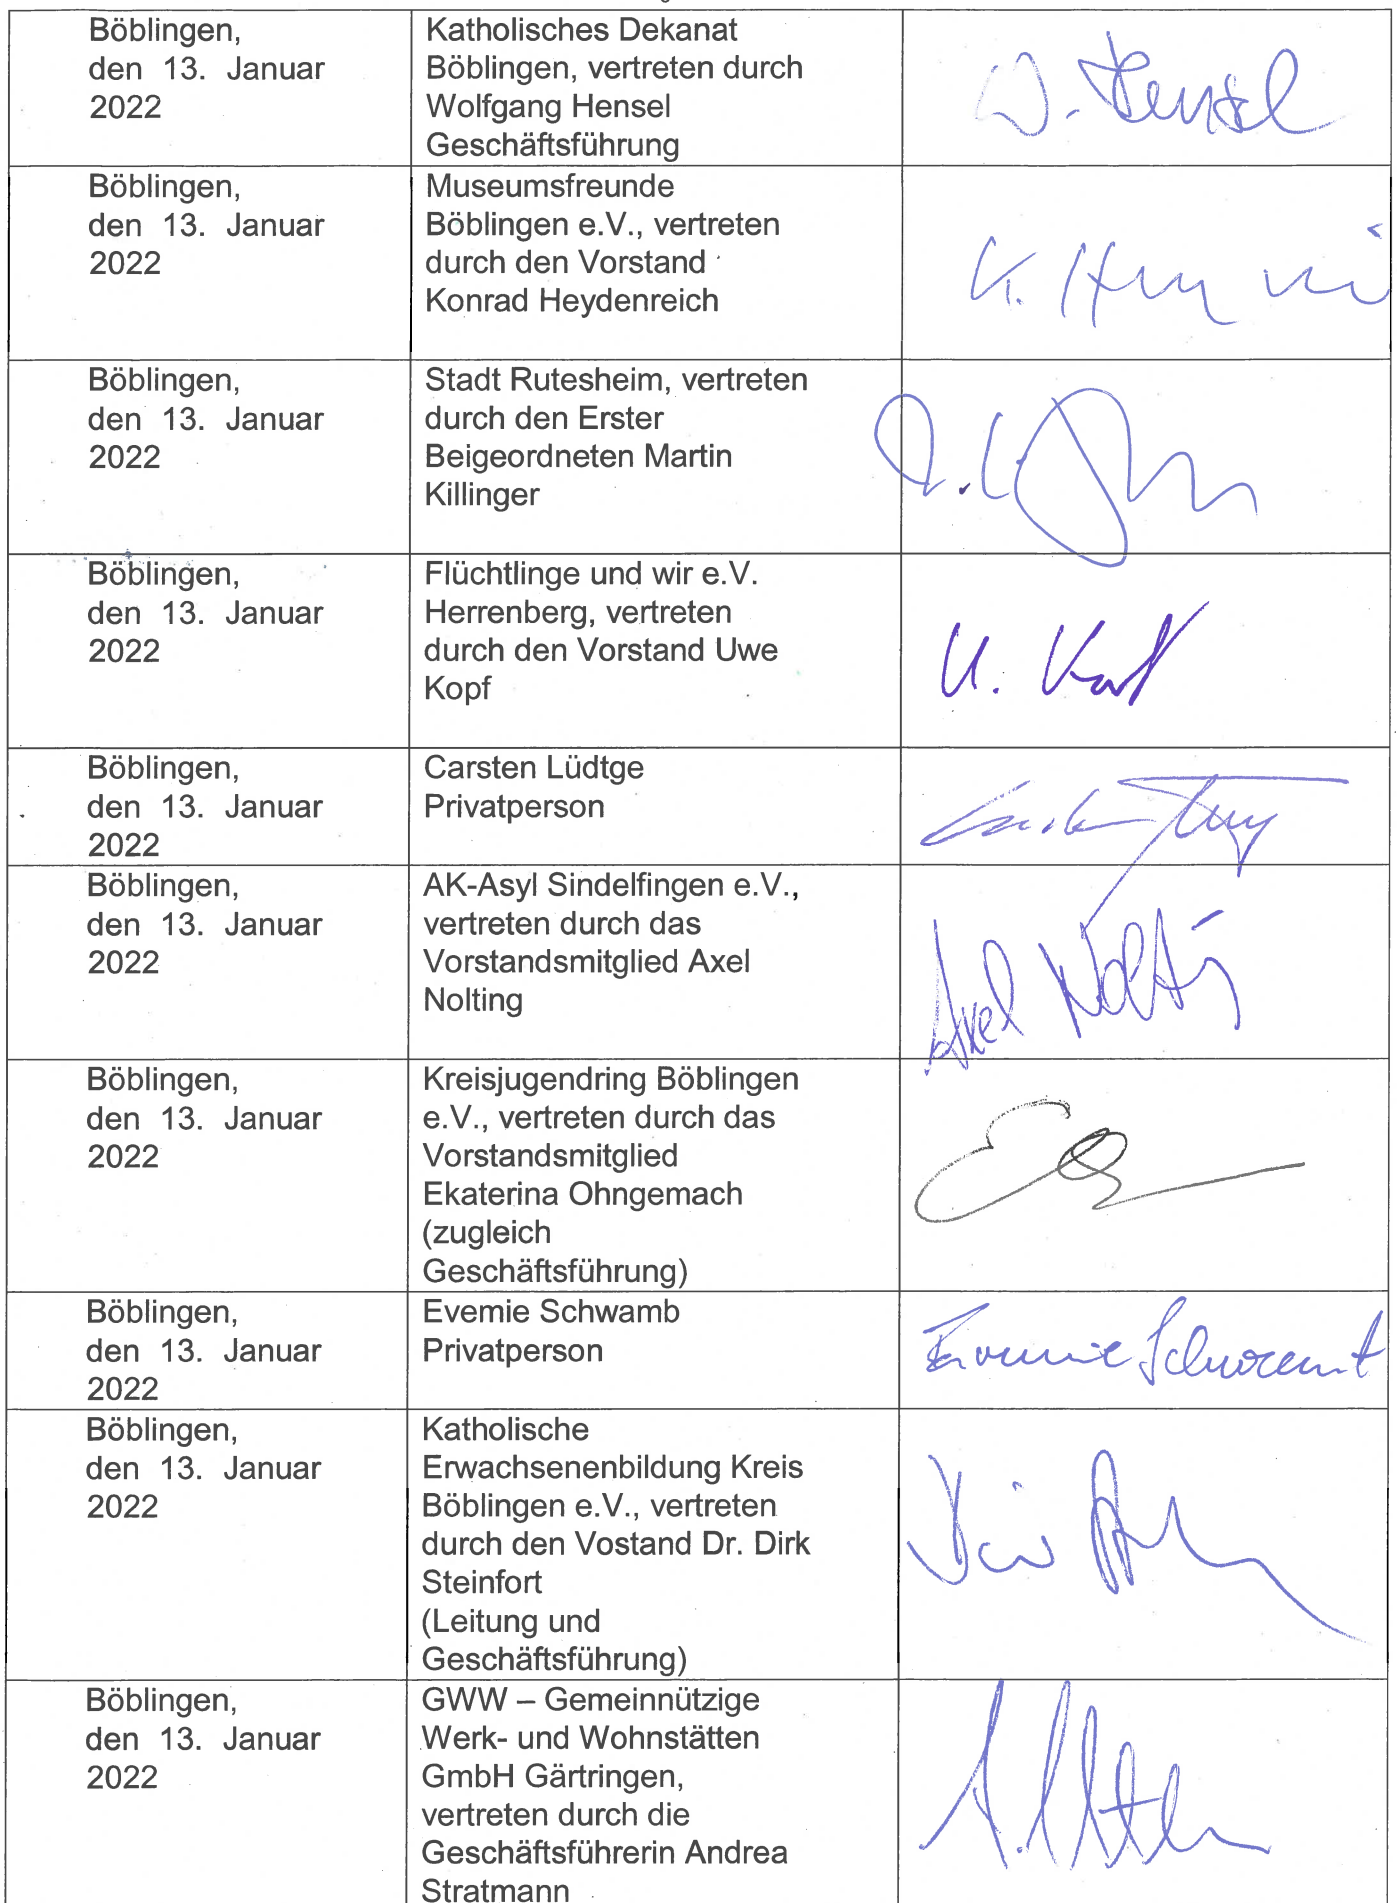 Böblingen,
den 13. Januar
2022
Katholisches Dekanat
Böblingen, vertreten durch
Wolfgang Hensel
Geschäftsführung
W. Hensel
Böblingen,
den 13. Januar
2022
Museumsfreunde
Böblingen e.V., vertreten
durch den Vorstand
Konrad Heydenreich
Böblingen,
den 13. Januar
2022
Stadt Rutesheim, vertreten
durch den Erster
Beigeordneten Martin
Killinger
Böblingen,
den 13. Januar
2022
Flüchtlinge und wir e.V.
Herrenberg, vertreten
durch den Vorstand Uwe
Kopf
U. Kopf
Böblingen,
den 13. Januar
2022
Carsten Lüdtge
Privatperson
Böblingen,
den 13. Januar
2022
AK-Asyl Sindelfingen e.V.,
vertreten durch das
Vorstandsmitglied Axel
Nolting
Axel Nolting
Böblingen,
den 13. Januar
2022
Kreisjugendring Böblingen
e.V., vertreten durch das
Vorstandsmitglied
Ekaterina Ohngemach
(zugleich
Geschäftsführung)
Böblingen,
den 13. Januar
2022
Evemie Schwamb
Privatperson
Evemie Schwamb
Böblingen,
den 13. Januar
2022
Katholische
Erwachsenenbildung Kreis
Böblingen e.V., vertreten
durch den Vostand Dr. Dirk
Steinfort
(Leitung und
Geschäftsführung)
Böblingen,
den 13. Januar
2022
GWW – Gemeinnützige
Werk- und Wohnstätten
GmbH Gärtringen,
vertreten durch die
Geschäftsführerin Andrea
Stratmann